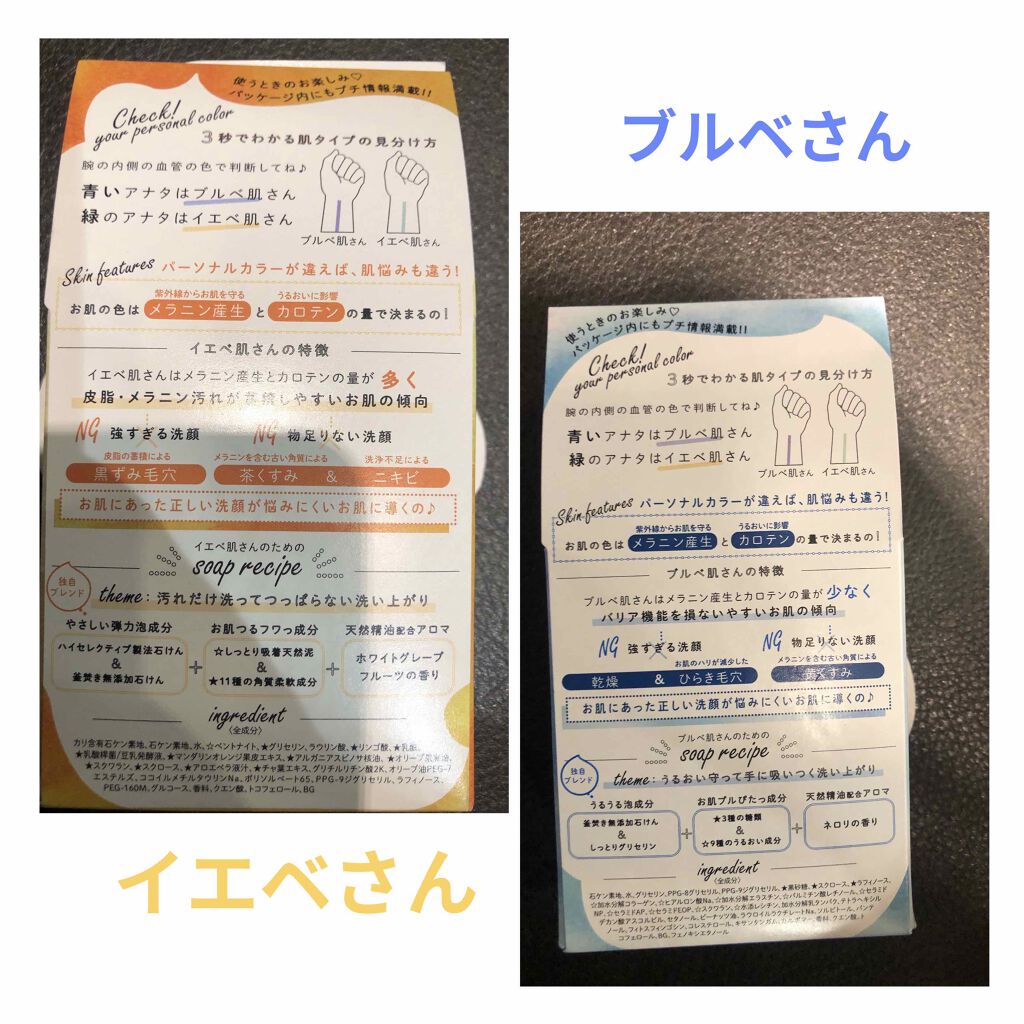 使うときのお楽しみ♡
パッケージ内にもプチ情報満載!!
Check!
your personal color
3秒でわかる肌タイプの見分け方
腕の内側の血管の色で判断してね♪
青いアナタはブルベ肌さん
緑のアナタはイエベ肌さん
ブルベ肌さん イエベ肌さん
Skin features パーソナルカラーが違えば、肌悩みも違う!
紫外線からお肌を守る うるおいに影響
お肌の色は メラニン産生 と カロテン の量で決まるの!
イエベ肌さんの特徴
イエベ肌さんはメラニン産生とカロテンの量が 多く
皮脂・メラニン汚れが蓄積しやすいお肌の傾向
NG 強すぎる洗顔 NG 物足りない洗顔
皮脂の蓄積による メラニンを含む古い角質による 洗浄不足による
黒ずみ毛穴 茶くすみ & ニキビ
お肌にあった正しい洗顔が悩みにくいお肌に導くの♪
イエベ肌さんのための
soap recipe
独自ブレンド
theme:汚れだけ洗ってつっぱらない洗い上がり
やさしい弾力泡成分 お肌つるフワっ成分 天然精油配合アロマ
ハイセレクティブ製法石けん & 釜焚き無添加石けん + ☆しっとり吸着天然泥 & ★11種の角質柔軟成分 + ホワイトグレープフルーツの香り
ingredient
〈全成分〉
カリ含有石ケン素地、石ケン素地、水、☆ベントナイト、★グリセリン、ラウリン酸、★リンゴ酸、★乳酸、
★乳酸桿菌/豆乳発酵液、★マンダリンオレンジ果皮エキス、★アルガニアスピノサ核油、★オリーブ果実油、
★スクワラン、★スクロース、★アロエベラ液汁、★チャ葉エキス、グリチルリチン酸2K、オリーブ油PEG-7
エステルズ、ココイルメチルタウリンNa、ポリソルベート65、PPG-9ジグリセリル、ラフィノース、
PEG-160M、グルコース、香料、クエン酸、トコフェロール、BG
イエベさん
ブルベさん
使うときのお楽しみ♡
パッケージ内にもプチ情報満載!!
Check!
your personal color
3秒でわかる肌タイプの見分け方
腕の内側の血管の色で判断してね♪
青いアナタはブルベ肌さん
緑のアナタはイエベ肌さん
ブルベ肌さん イエベ肌さん
Skin features パーソナルカラーが違えば、肌悩みも違う!
紫外線からお肌を守る うるおいに影響
お肌の色は メラニン産生 と カロテン の量で決まるの!
ブルベ肌さんの特徴
ブルベ肌さんはメラニン産生とカロテンの量が 少なく
バリア機能を損ないやすいお肌の傾向
NG 強すぎる洗顔 NG 物足りない洗顔
お肌のハリが減少した メラニンを含む古い角質による
乾燥 & ひらき毛穴 黄くすみ
お肌にあった正しい洗顔が悩みにくいお肌に導くの♪
ブルベ肌さんのための
soap recipe
独自ブレンド
theme:うるおい守って手に吸いつく洗い上がり
うるうる泡成分 お肌プルぴたっ成分 天然精油配合アロマ
釜焚き無添加石けん & しっとりグリセリン + ★3種の糖類 & ☆9種のうるおい成分 + ネロリの香り
ingredient
〈全成分〉
石ケン素地、水、グリセリン、PPG-8グリセリル、PPG-9ジグリセリル、★黒砂糖、★スクロース、★ラフィノース、
☆加水分解コラーゲン、☆ヒアルロン酸Na、☆加水分解エラスチン、☆パルミチン酸レチノール、☆セラミド
NP、☆セラミドAP、☆セラミドEOP、☆スクワラン、☆水添レシチン、加水分解乳タンパク、テトラヘキシル
デカン酸アスコルビル、セタノール、ピーナッツ油、ラウロイルラクチレートNa、ソルビトール、パンテ
ノール、フィトスフィンゴシン、コレステロール、キサンタンガム、カルボマー、香料、クエン酸、ト
コフェロール、BG、フェノキシエタノール